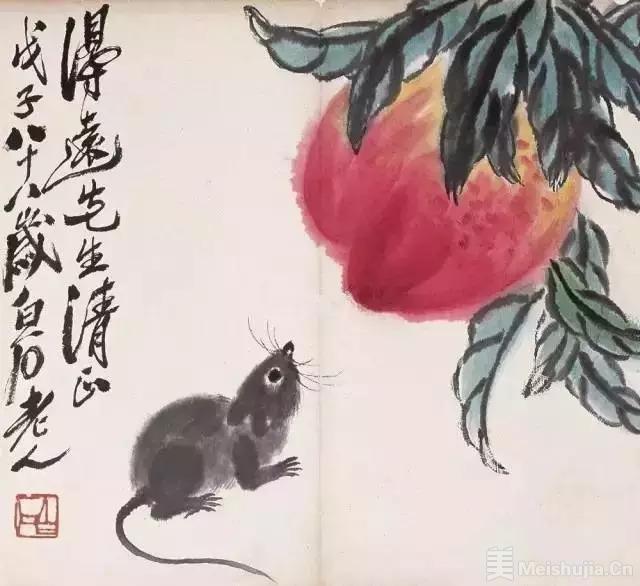 淂遠先生清正
戊子八十八歲白石老人
美 Meishujia.Cn